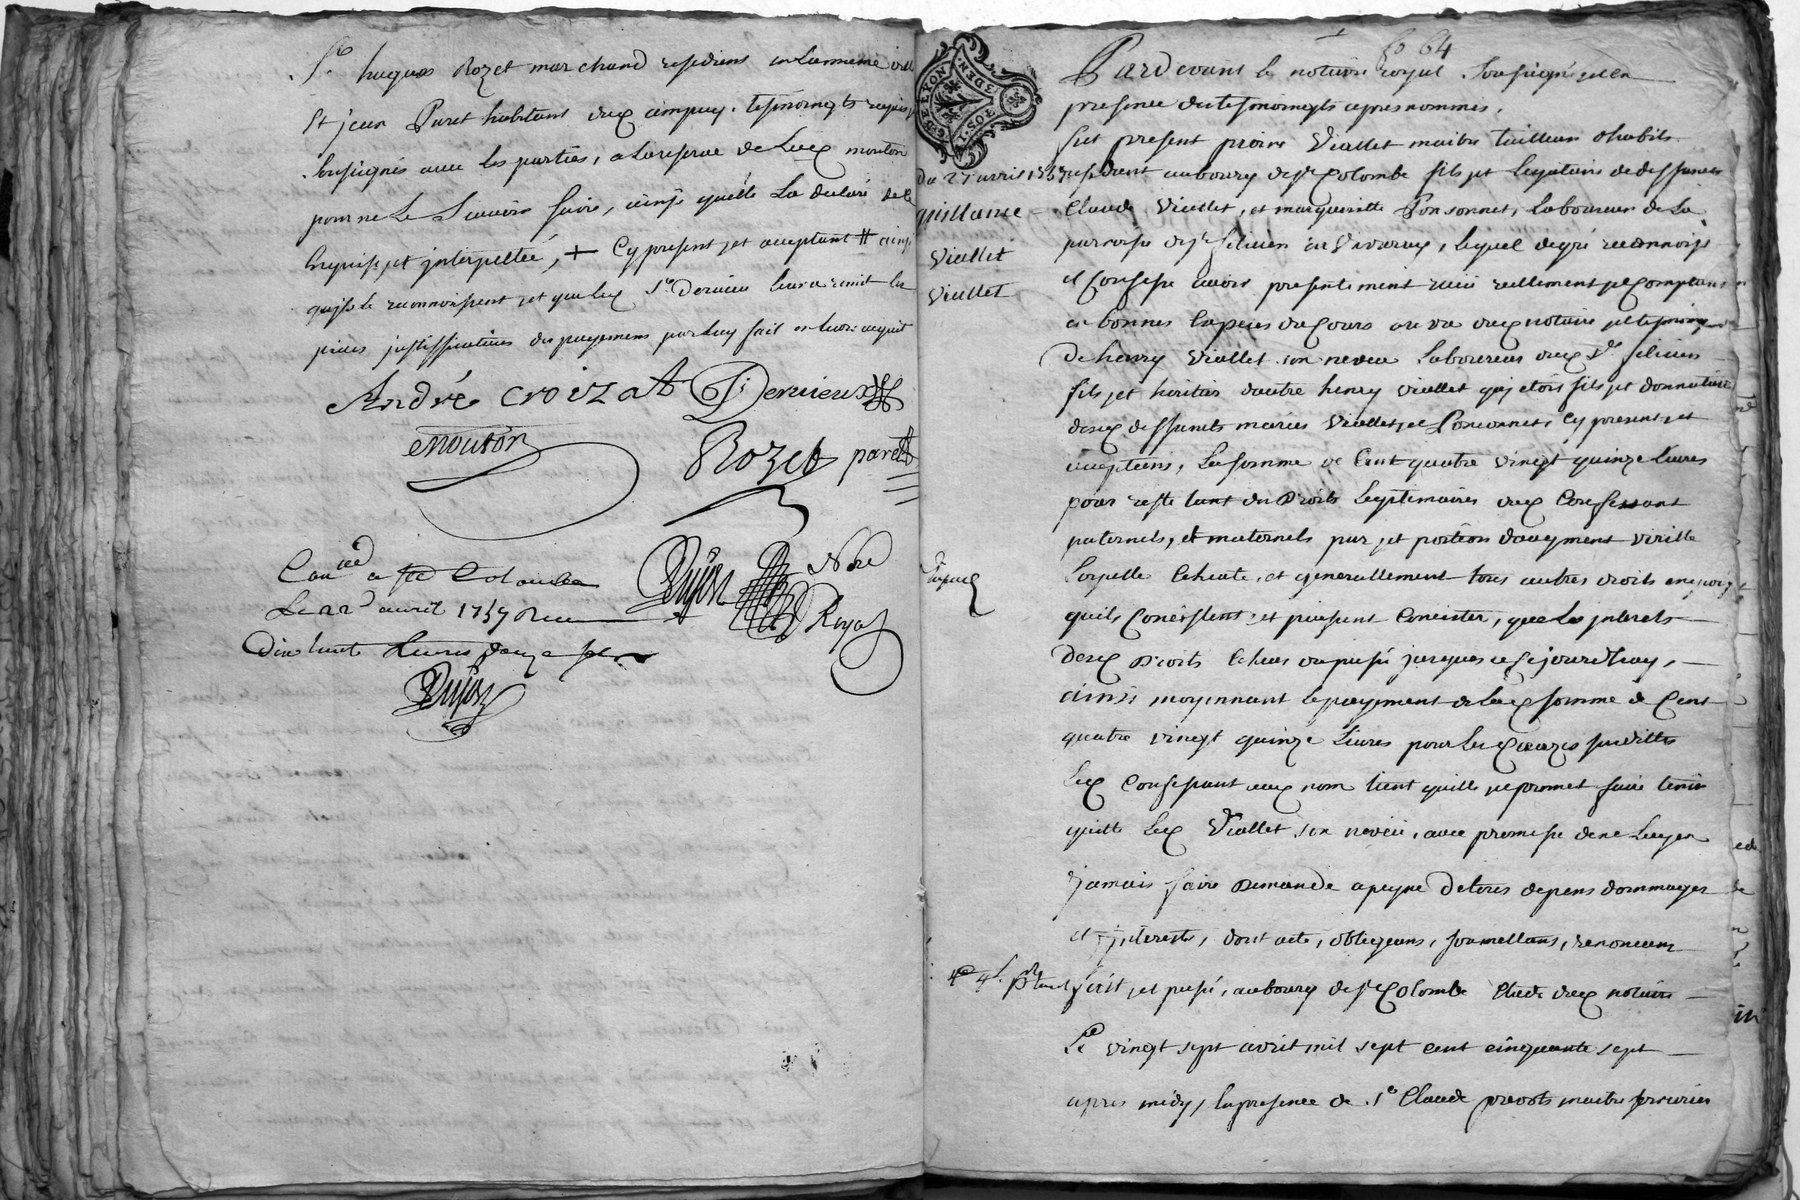 Sr hugues Rozet marchand residens en la meme ville
Et jean Paret habitant aux ampuy, tesmoingts requis,
soussignés avec les parties, a la reserve de lad. mouton
pour ne le scavoir faire, ainsi qu'elle la declaré de ce
enquise et interpellée, + cy present et acceptant # ainsy
quils le reconnoissent et que led. sr Dervieu leur a remit les
pieces justifficatives du payement par luy fait en leur acquit
André croizat Dervieux
mouton Rozet paret
Dujon Nore Royal
Con^lle a ste Colombe
Le 22d avril 1757 Recu
Dix huit Livres douze sols
Dujon
fo 64
GEN. DE LYON
DEN.
Pardevant le notaire royal soussigné et en
presence des tesmoingts apres nommés,
fut present pierre Viallet maitre tailleur d'habits
Du 27 avril 1757
residant au bourg de ste Colombe fils et legataire de deffunts
quittance
Claude Viallet, et marguerite Ponsonnet, laboureur de la
Viallet
Viallet
parroisse de st silvien en Vivarez, lequel de gré reconnoist
et Confesse avoir presentement receu reellement et Comptant
en bonnes especes du Cours au vu dud. notaire et tesmoings
De henry Viallet son neveu laboureur aud. st silvien
fils et heritier d'autre henry Viallet qui etoit fils et donnataire
desd. deffunts mariés Viallet et Ponsonnet, cy present et
acceptant, la somme de Cent quatre vingt quinze livres
pour reste tant des Droits legitimaires dud. Confessant
paternels, et maternels part et portion d'augment virille
sorpelle echeute, et generallement tous autres droits en quoy
quils Consistent et puissent Consister, que les jnterets
desd. Droits echeus du passé jusques a ce jourdhuy,
ainsi moyennant le payement de lad. somme de Cent
quatre vingt quinze livres pour les causes susdittes
led. Confessant aux nom tient quitte et promet faire tenir
quitte led. Viallet son neveu, avec promesse de ne luy en
jamais faire Demande a peyne de tous depens dommages
et jnterests, dont acte, obligeans, soumettans, renonceans
fait et passé, au bourg de ste Colombe etude dud. notaire
Le vingt sept avril mil sept cent cinquante sept
apres midy, en presence de sr Claude prevots maitre serrurier